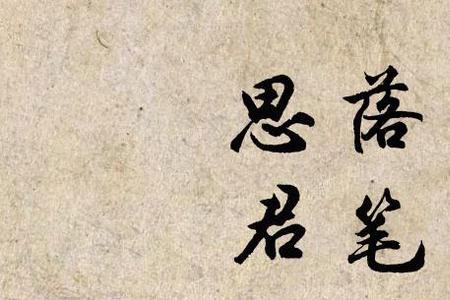 落笔
思君